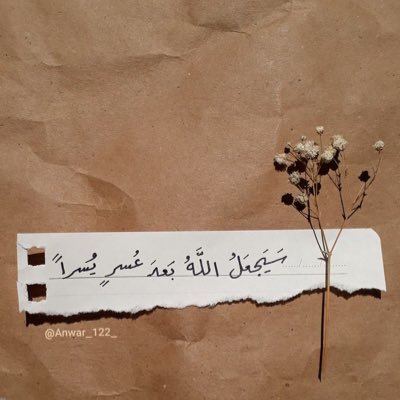 سَيَجعَلُ اللَّهُ بَعدَ عُسرٍ يُسراً
@Anwar_122_